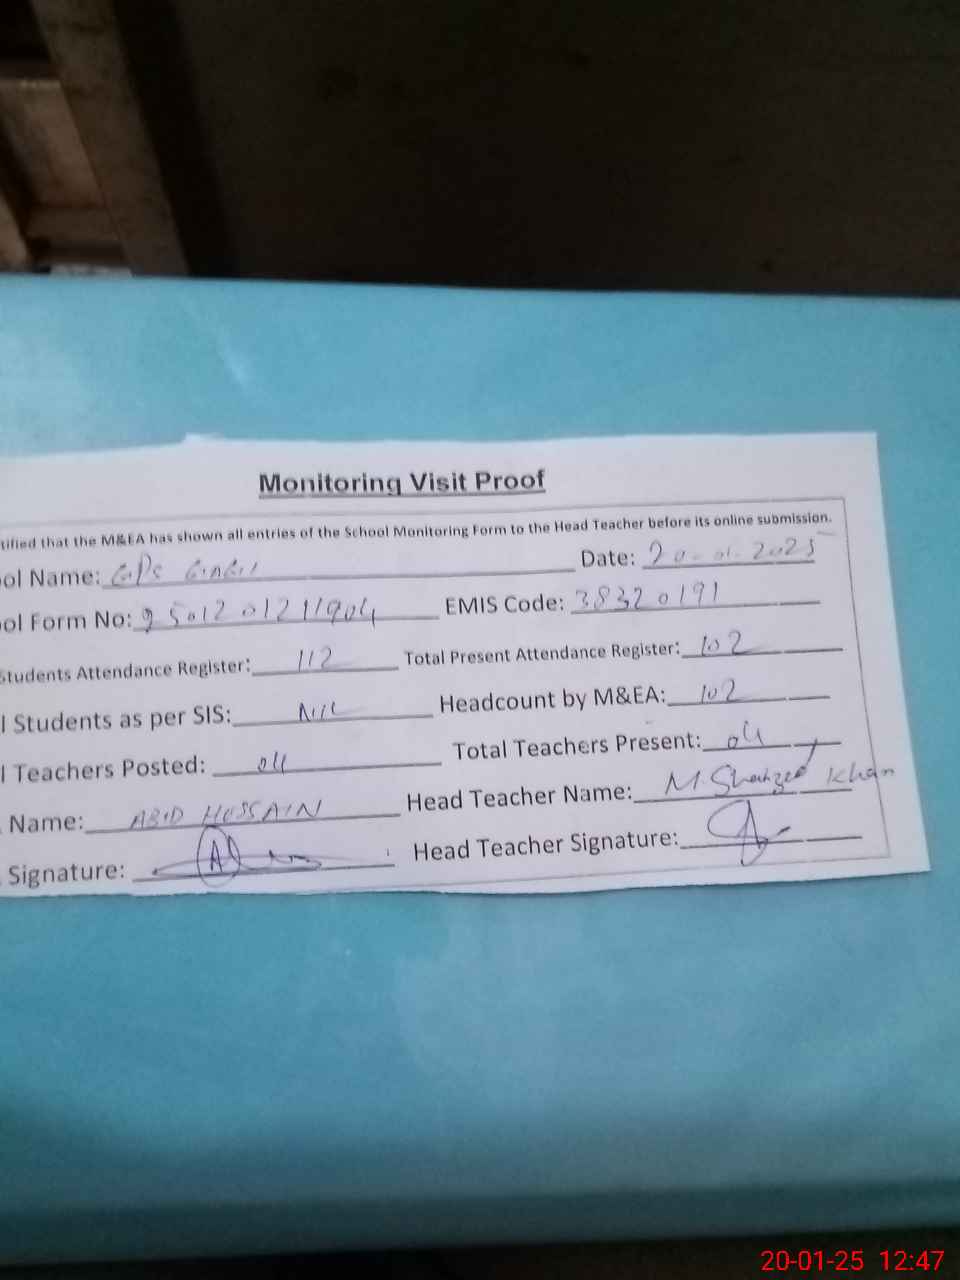 Monitoring Visit Proof
tified that the M&EA has shown all entries of the School Monitoring Form to the Head Teacher before its online submission.
ol Name: GPS Date: 20-01-2025
ol Form No: 9501201211904 EMIS Code: 38320191
Students Attendance Register: 112 Total Present Attendance Register: 102
l Students as per SIS: NIL Headcount by M&EA: 102
l Teachers Posted: 04 Total Teachers Present: 04
Name: ABID HUSSAIN Head Teacher Name: M. Shahzad Khan
Signature: Head Teacher Signature:
20-01-25 12:47